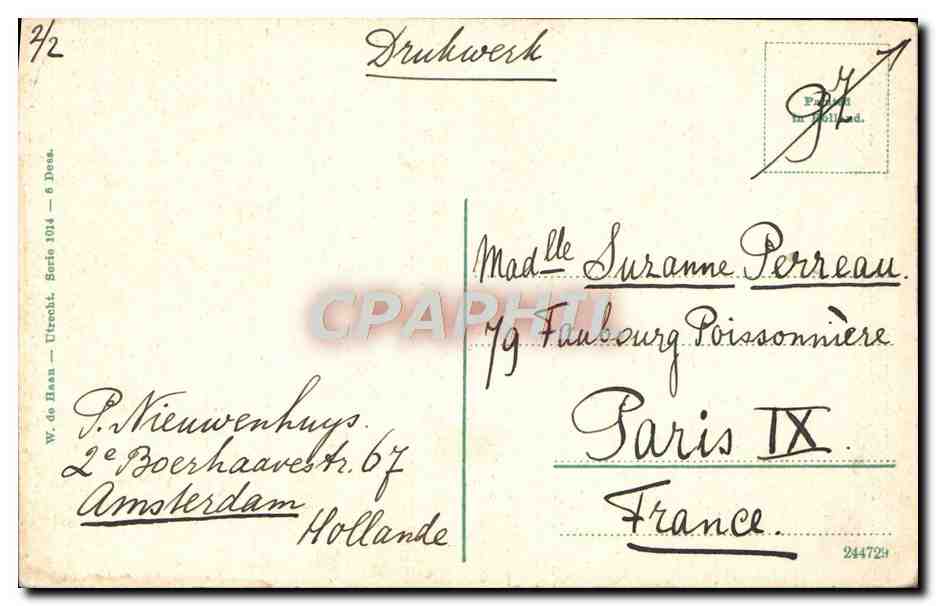 2/2
Drukwerk
Printed
in Holland.
W. de Haan — Utrecht. Serie 1014 — 6 Dess.
Madlle Suzanne Perreau.
79 Faubourg Poissonnière
Paris IX.
France.
P. Nieuwenhuys.
2e Boerhaavestr. 67
Amsterdam
Hollande
CPAPHIL
244729